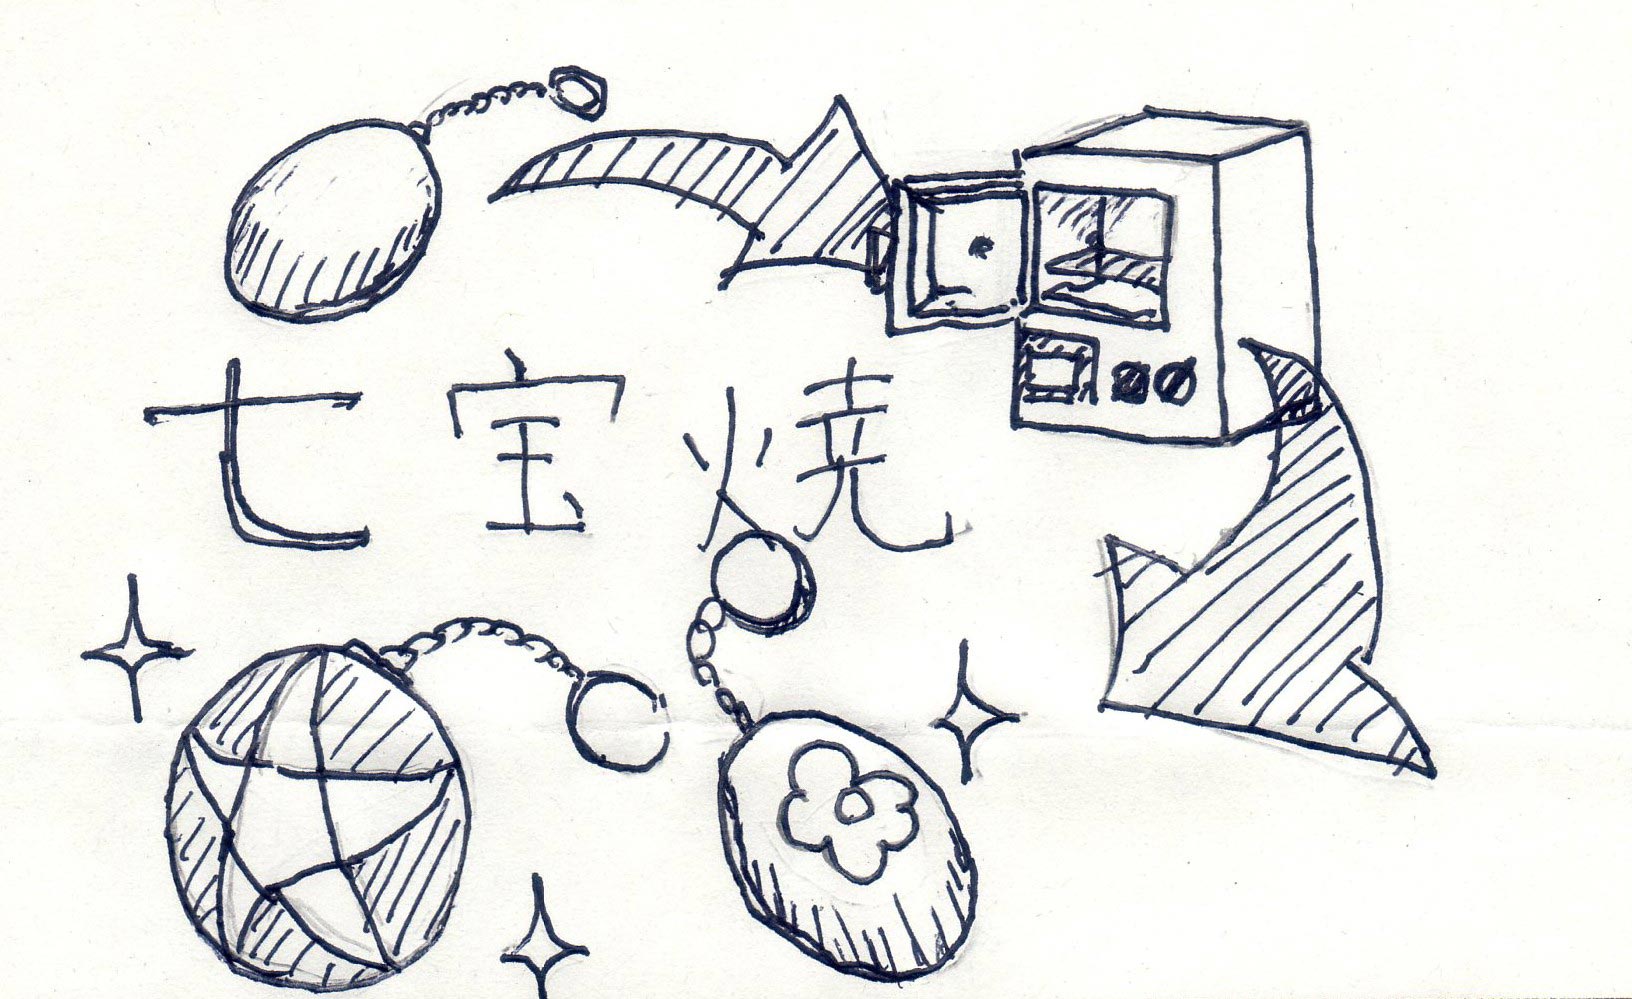 七宝焼